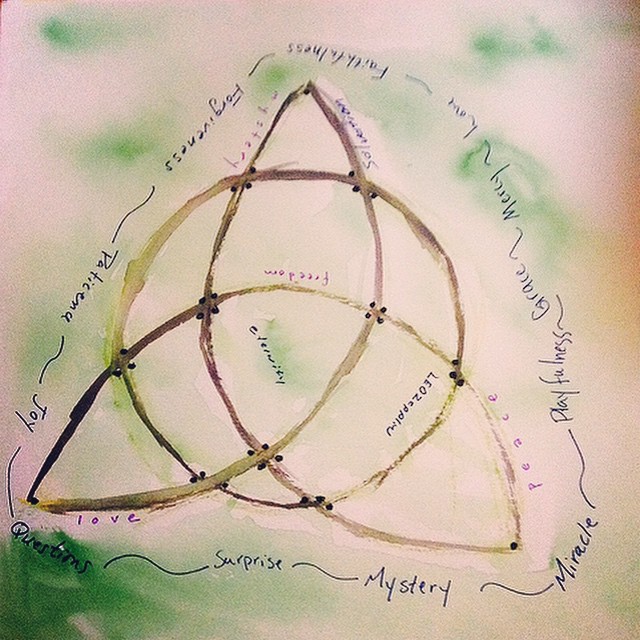 Faithfulness
Love
Mercy
Grace
Playfulness
Miracle
Mystery
Surprise
Questions
Joy
Paticence
Forgiveness
mystery
Salvation
freedom
LEDZEPPLIN
peace
love